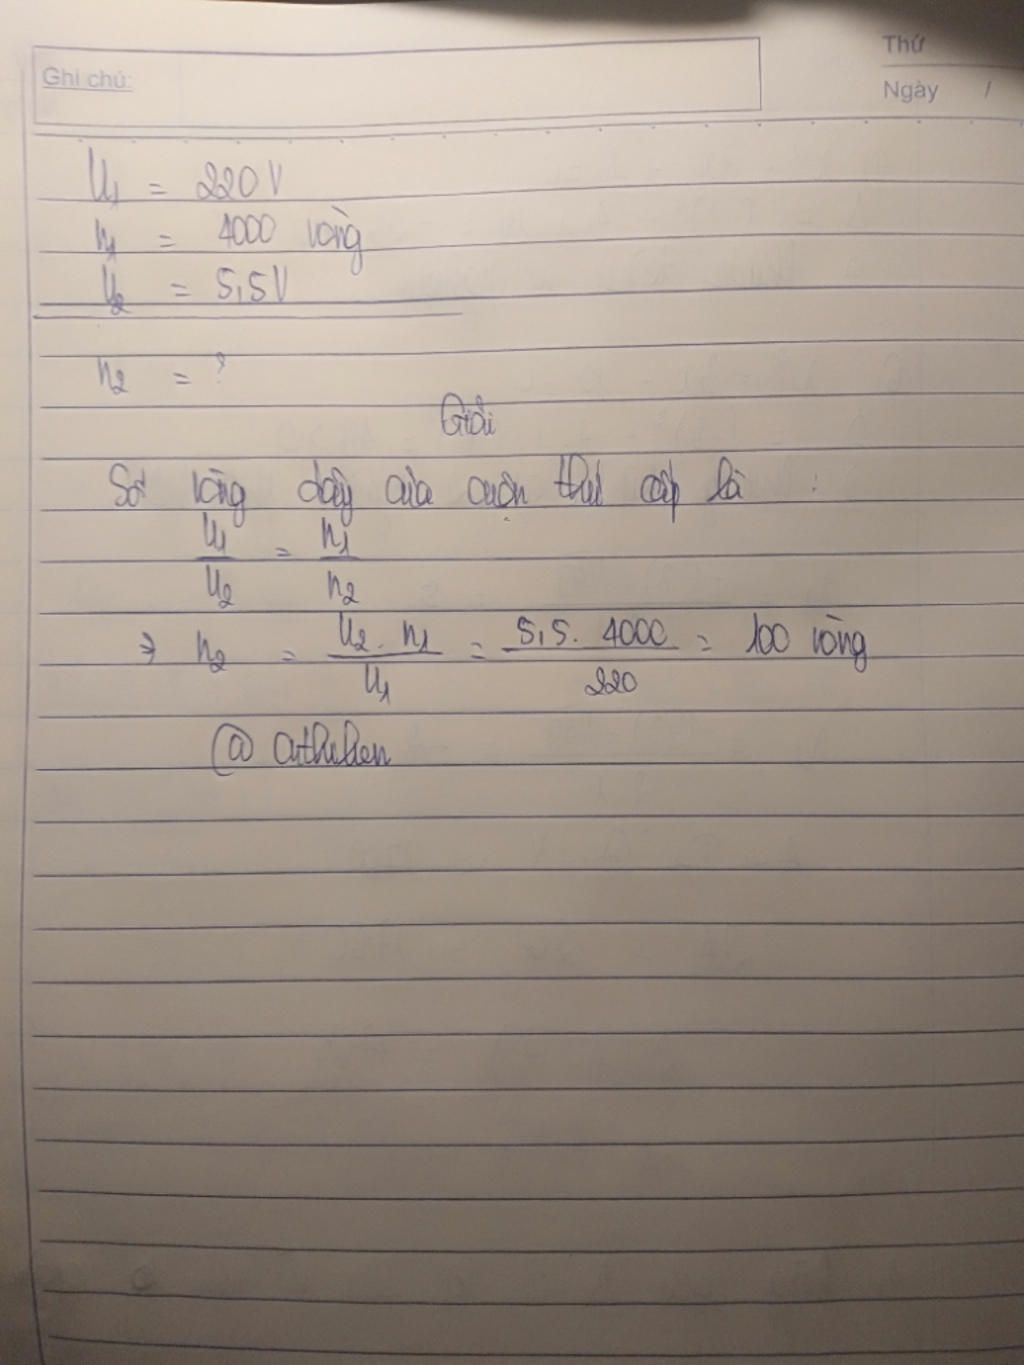 Ghi chú:
Thứ
Ngày /
U₁ = 220 V
n₁ = 4000 vòng
U₂ = 5,5V
n₂ = ?
Giải
Số vòng dây của cuộn thứ cấp là :
U₁/U₂ = n₁/n₂
⇒ n₂ = U₂ . n₁/U₁ = 5,5 . 4000/220 = 100 vòng